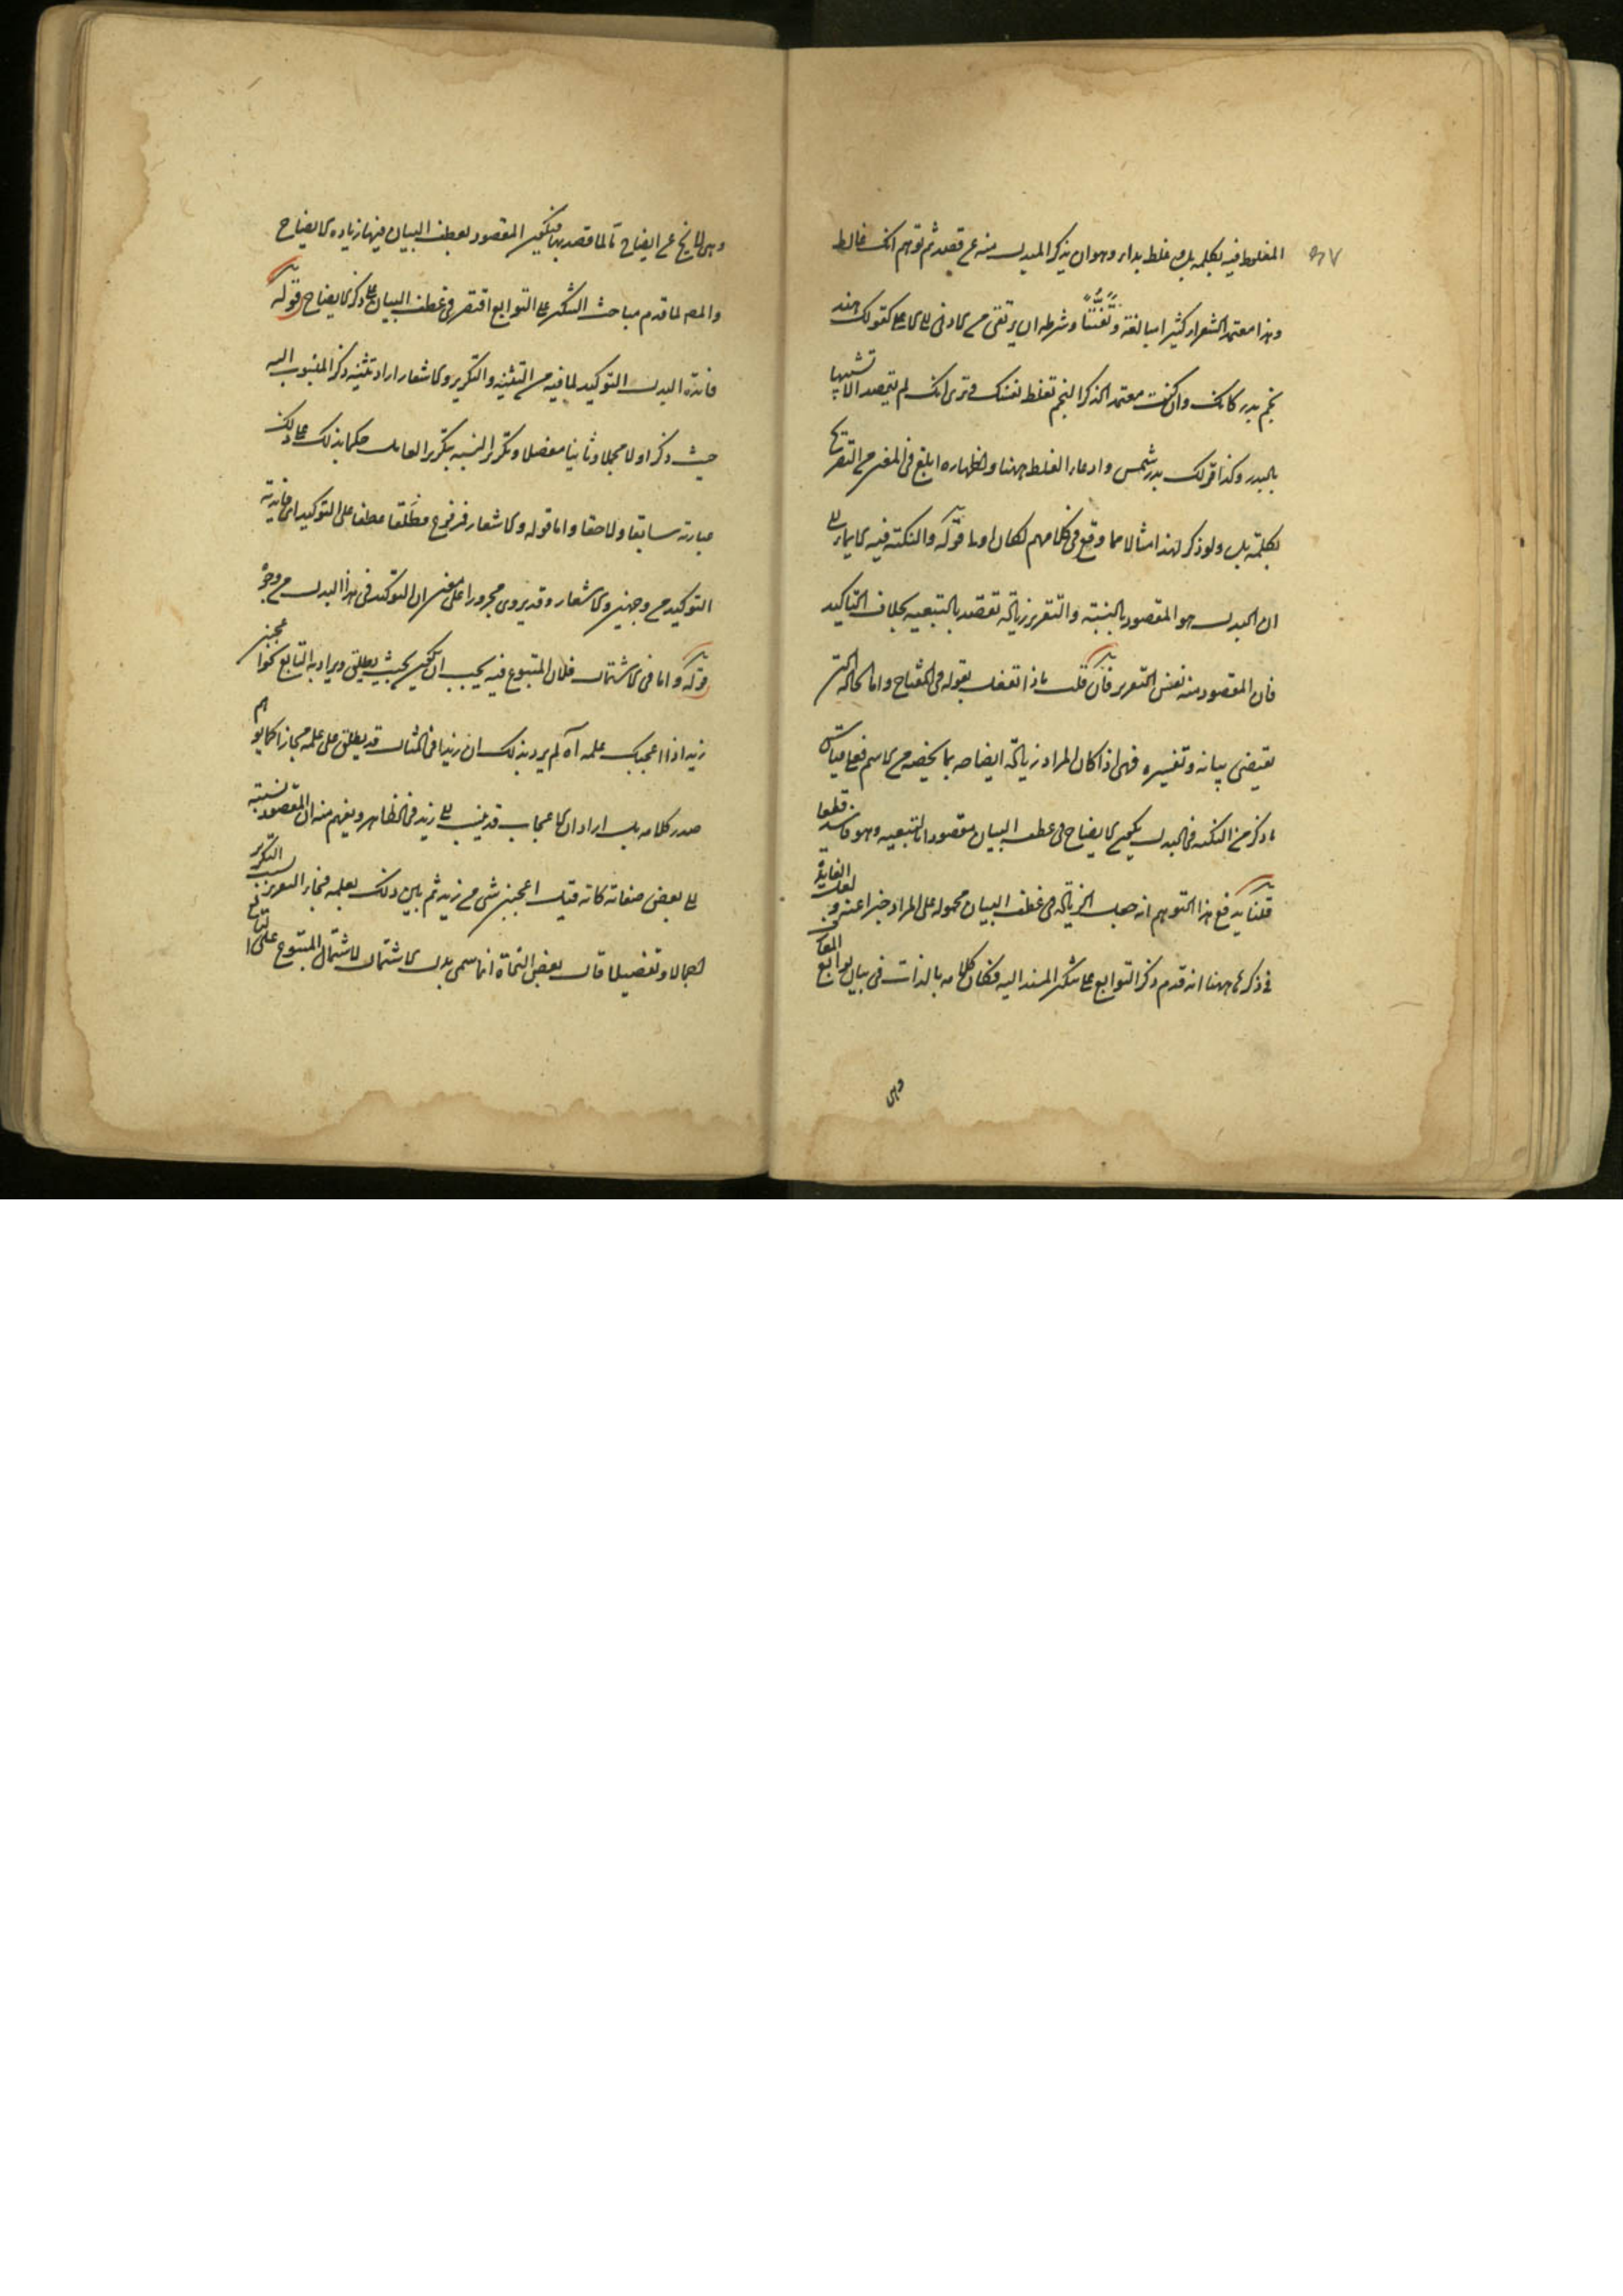 المغلوط فيه بكلمة بل وغلط بداء وهو ان يذكر المبدل منه عن قصد ثم توهم انك غالط
وهذا معتمد الشعراء كثيرا مبالغة وتفننا وشرطه ان يرتقى من الادنى الى الاعلى كقولك هند
نجم بدر كانك وان كنت معتمد الذكر النجم تغلط نفسك وترى انك لم تقصد الا تشبيهها
بالبدر وكذا قولك بدر شمس وادعاء الغلط ههنا واظهاره ابلغ في المعنى من التصريح
بكلمة بل ولو ذكر لهذا مثالا مما وقع في كلامهم لكان اولى قوله والنكتة فيه الايماء الى
ان البدل هو المقصود بالنسبة والتقرير زيادة تقصد بالتبعية بخلاف التاكيد
فان المقصود منه نفس التقرير فان قلت ماذا تفعل بقوله في المفتاح واما الحالة التي
تقتضى بيانه وتفسيره فهى اذا كان المراد زيادة ايضاحه بما يخصه من الاسم فعلى قياس
ما ذكر من النكتة في البدل يكون الايضاح في عطف البيان مقصودا بالتبعية وهو فاسد قطعا
قلنا يدفع هذا التوهم انه جعل الزيادة في عطف البيان محمولة على المراد خبرا عنه ولعل الفايدة
في ذكرها ههنا انه قدم ذكر التوابع على تنكير المسند اليه فكان كلامه بالذات في بيان توابع المعارف
وهى
وهى لا يخ عن ايضاح ما لما قصد بها فيكون المقصود بعطف البيان فيها زيادة الايضاح
والمص لما قدم مباحث التنكير على التوابع اقتصر في عطف البيان على ذكر الايضاح قوله
فائدة البدل التوكيد لما فيه من التثنية والتكرير والاشعار اراد تثنية ذكر المنسوب اليه
حيث ذكر اولا مجملا وثانيا مفصلا وتكرير النسبة بتكرير العامل حكما يدلك على ذلك
عبارته سابقا ولاحقا واما قوله والاشعار فمرفوع مطلقا عطفا على التوكيد اى فايدته
التوكيد من وجهين والاشعار وقد يروى مجرورا على معنى ان التوكيد في هذا البدل من وجوه
قوله واما في الاشتمال فلان المتبوع فيه يجب ان يكون بحيث يطلق ويراد به التابع نحو اعجبنى
زيد اذا اعجبك علمه آه لم يرد بذلك ان زيدا في المثال قد يطلق على علمه مجازا كما يوهم
صدر كلامه بل اراد ان الاعجاب قد ينسب الى زيد في الظاهر ويفهم منه ان المقصود نسبته
الى بعض صفاته كانه قيل اعجبنى شى من زيد ثم بين ذلك بعلمه فجاء التقرير بسبب التكرير
اجمالا وتفصيلا قال بعض النحاة انما سمى بدل الاشتمال لاشتمال المتبوع على التابع